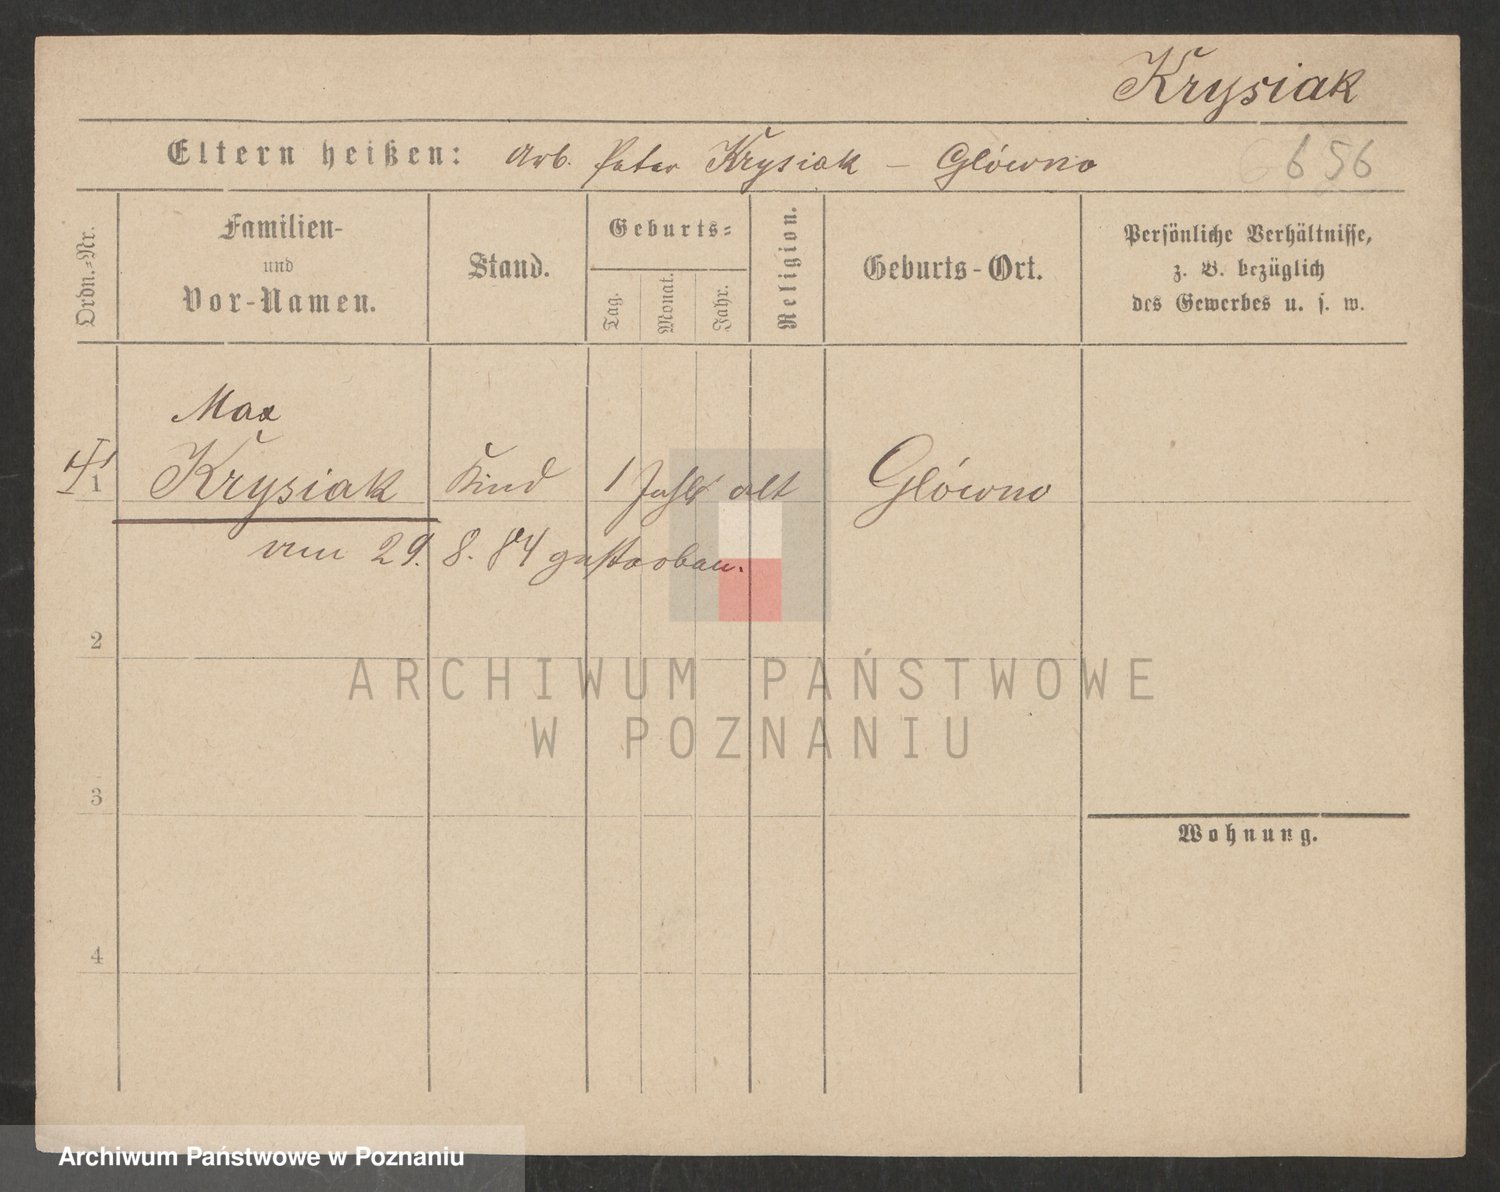 Krysiak
Eltern heißen: Arb. Peter Krysiak – Glówno
656
Ordn.-Nr.
Familien-
und
Vor-Namen.
Stand.
Geburts-
Tag.
Monat.
Jahr.
Religion.
Geburts-Ort.
Persönliche Verhältnisse,
z. B. bezüglich
des Gewerbes u. s. w.
Max
1 Krysiak Kind 1 Jahr alt Glówno
am 29. 8. 84 gestorben.
2
ARCHIWUM PAŃSTWOWE
W POZNANIU
3
Wohnung.
4
Archiwum Państwowe w Poznaniu